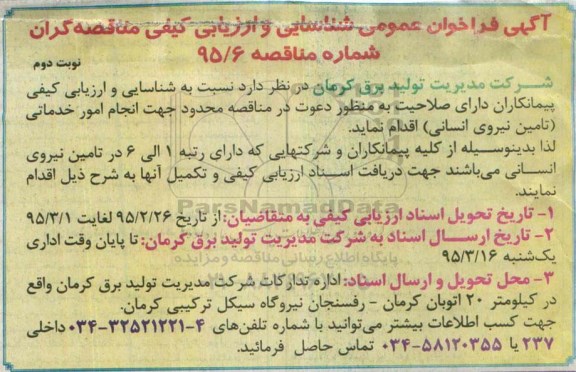 آگهی فراخوان عمومی شناسایی و ارزیابی کیفی مناقصه‌گران
شماره مناقصه ۹۵/۶
نوبت دوم
شرکت مدیریت تولید برق کرمان در نظر دارد نسبت به شناسایی و ارزیابی کیفی
پیمانکاران دارای صلاحیت به منظور دعوت در مناقصه محدود جهت انجام امور خدماتی
(تامین نیروی انسانی) اقدام نماید.
لذا بدینوسیله از کلیه پیمانکاران و شرکتهایی که دارای رتبه ۱ الی ۶ در تامین نیروی
انسانی می‌باشند جهت دریافت اسناد ارزیابی کیفی و تکمیل آنها به شرح ذیل اقدام
نمایند.
۱- تاریخ تحویل اسناد ارزیابی کیفی به متقاضیان: از تاریخ ۹۵/۲/۲۶ لغایت ۹۵/۳/۱
۲- تاریخ ارسال اسناد به شرکت مدیریت تولید برق کرمان: تا پایان وقت اداری
یک‌شنبه ۹۵/۳/۱۶
۳- محل تحویل و ارسال اسناد: اداره تدارکات شرکت مدیریت تولید برق کرمان واقع
در کیلومتر ۲۰ اتوبان کرمان - رفسنجان نیروگاه سیکل ترکیبی کرمان.
جهت کسب اطلاعات بیشتر می‌توانید با شماره تلفن‌های ۴-۳۲۵۲۱۲۲۱-۰۳۴ داخلی
۲۳۷ یا ۵۸۱۲۰۳۵۵-۰۳۴ تماس حاصل فرمائید.
ParsNamadData
پایگاه اطلاع رسانی مناقصه و مزایده